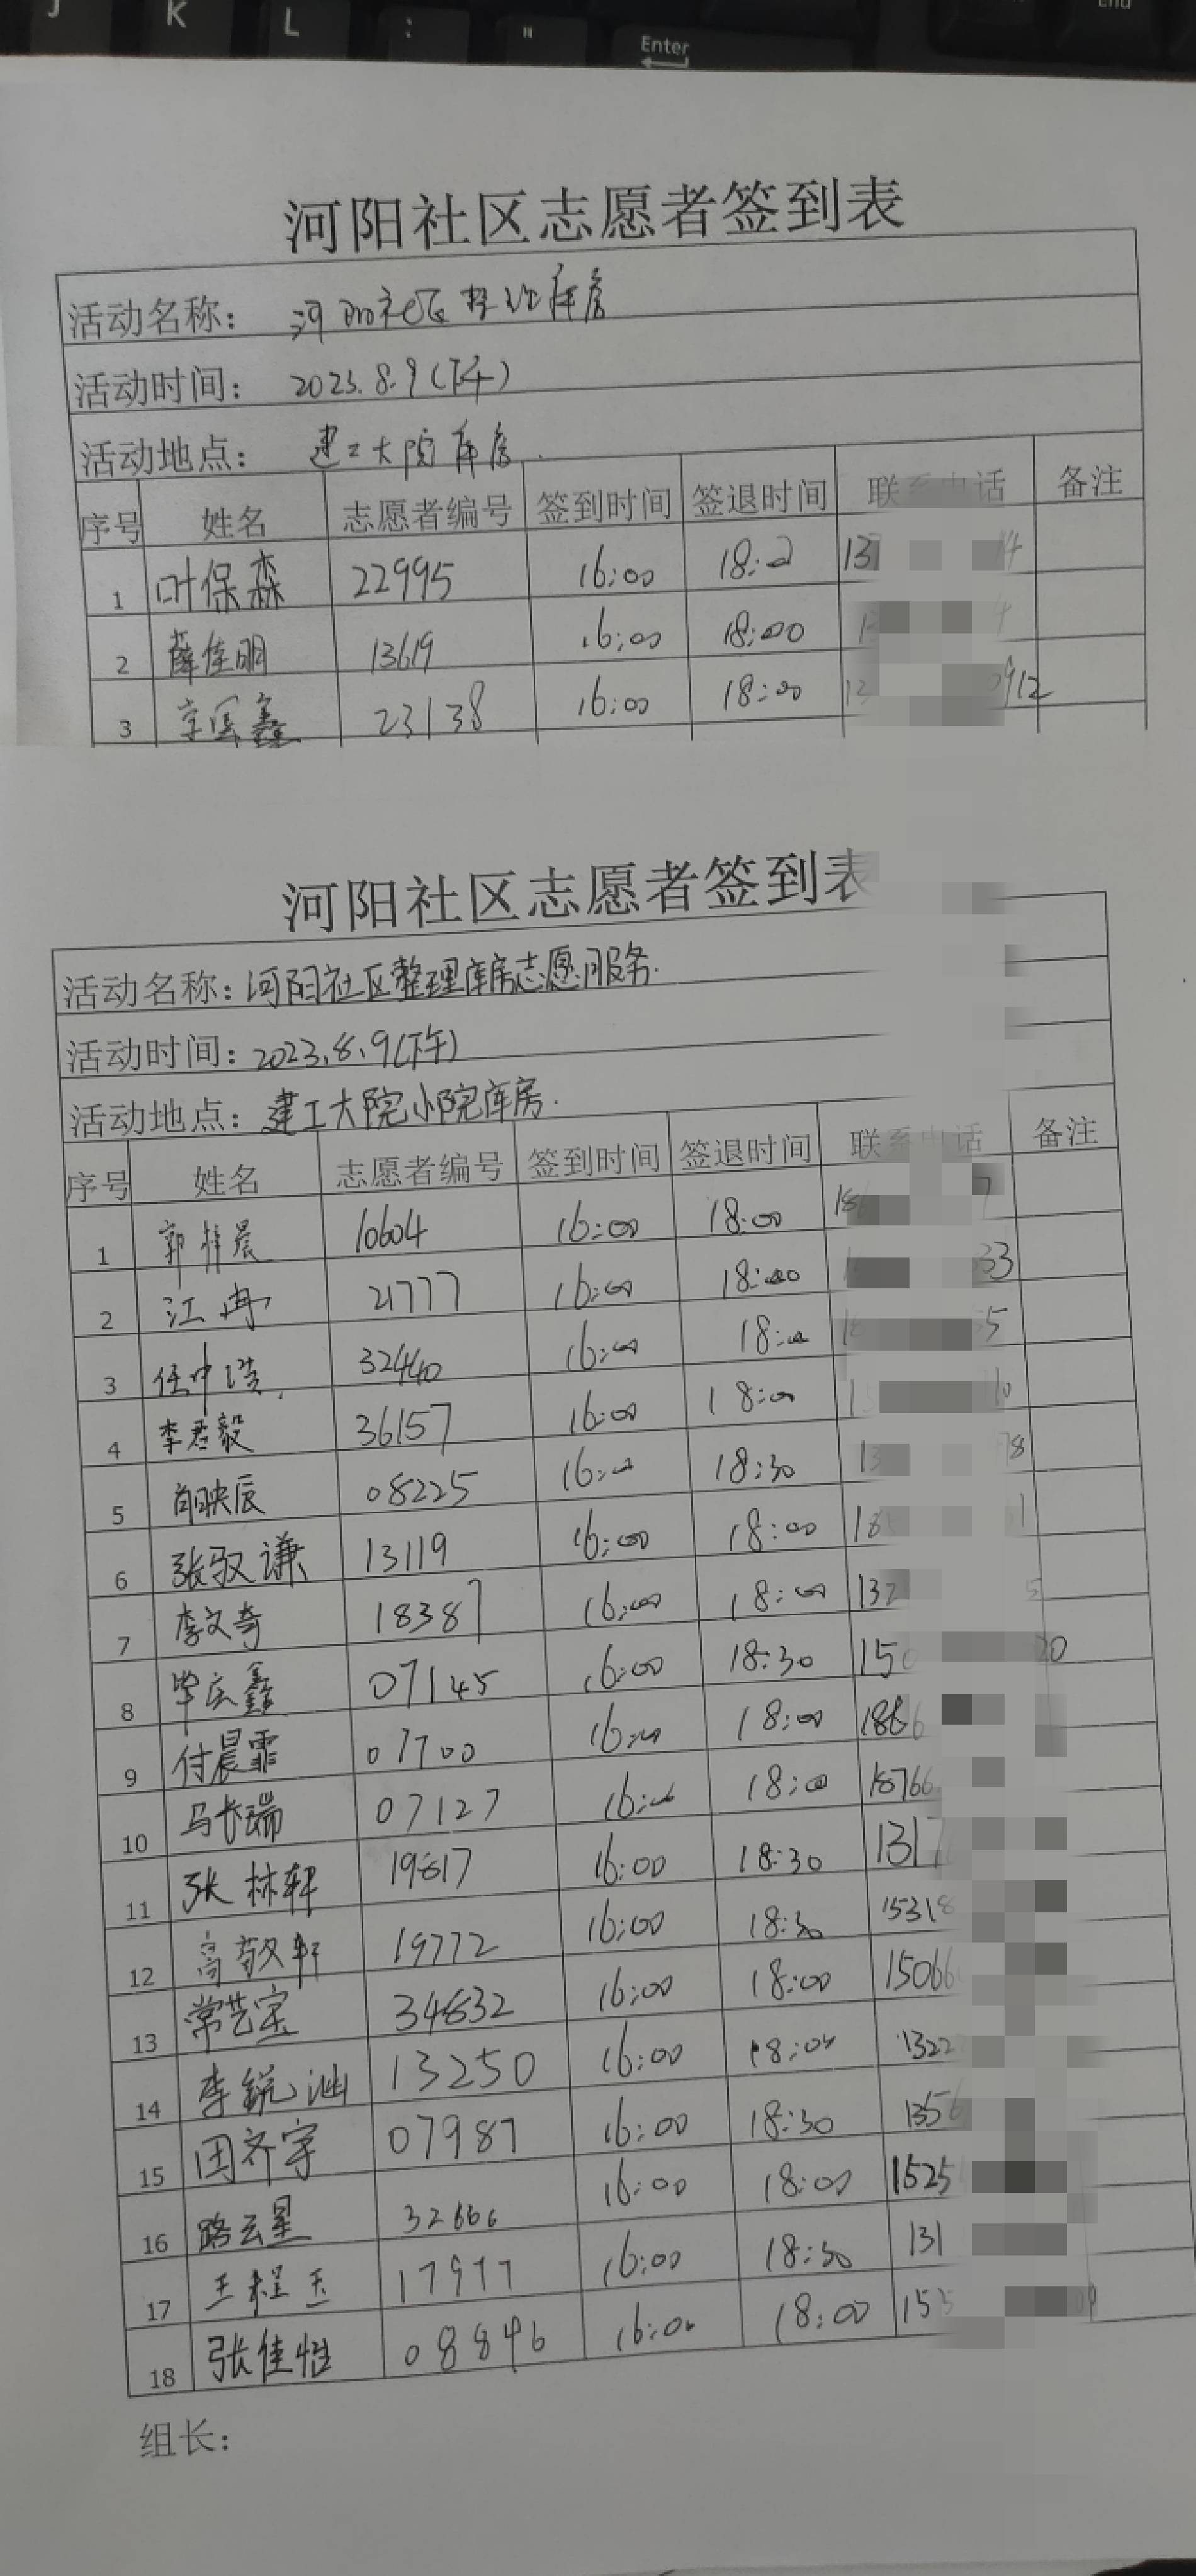 J K L : " Enter End
河阳社区志愿者签到表
活动名称: 河阳社区整理库房
活动时间: 2023.8.9(下午)
活动地点: 建工大院库房.
序号 姓名 志愿者编号 签到时间 签退时间 联系电话 备注
1 叶保森 22995 16:00 18:00 13
2 薛佳明 13619 16:00 18:00
3 鑫 23138 16:00 18:00 0912
河阳社区志愿者签到表
活动名称: 河阳社区整理库房志愿服务.
活动时间: 2023.8.9(下午)
活动地点: 建工大院小院库房.
序号 姓名 志愿者编号 签到时间 签退时间 联系电话 备注
1 郭梓晨 10604 16:00 18:00 18
2 江冉 21777 16:00 18:00 33
3 任中浩. 32440 16:00 18:00 5
4 李君毅 36157 16:00 18:00
5 肖映辰 08225 16:00 18:30 13 78
6 张驭谦 13119 16:00 18:00 18
7 李文奇 18387 16:00 18:00 132
8 毕庆鑫 07145 16:00 18:30 150 20
9 付晨霏 07700 16:00 18:00 1866
10 马长瑞 07127 16:00 18:00 18766
11 张林轩 19817 16:00 18:30 131
12 高敬轩 19772 16:00 18:30 15318
13 常艺宝 34832 16:00 18:00 15066
14 李锐 13250 16:00 18:00 1322
15 田齐宇 07987 16:00 18:30 1356
16 路云星 32666 16:00 18:00 1525
17 王程玉 17977 16:00 18:30 131
18 张佳怡 08846 16:00 18:00 15
组长: